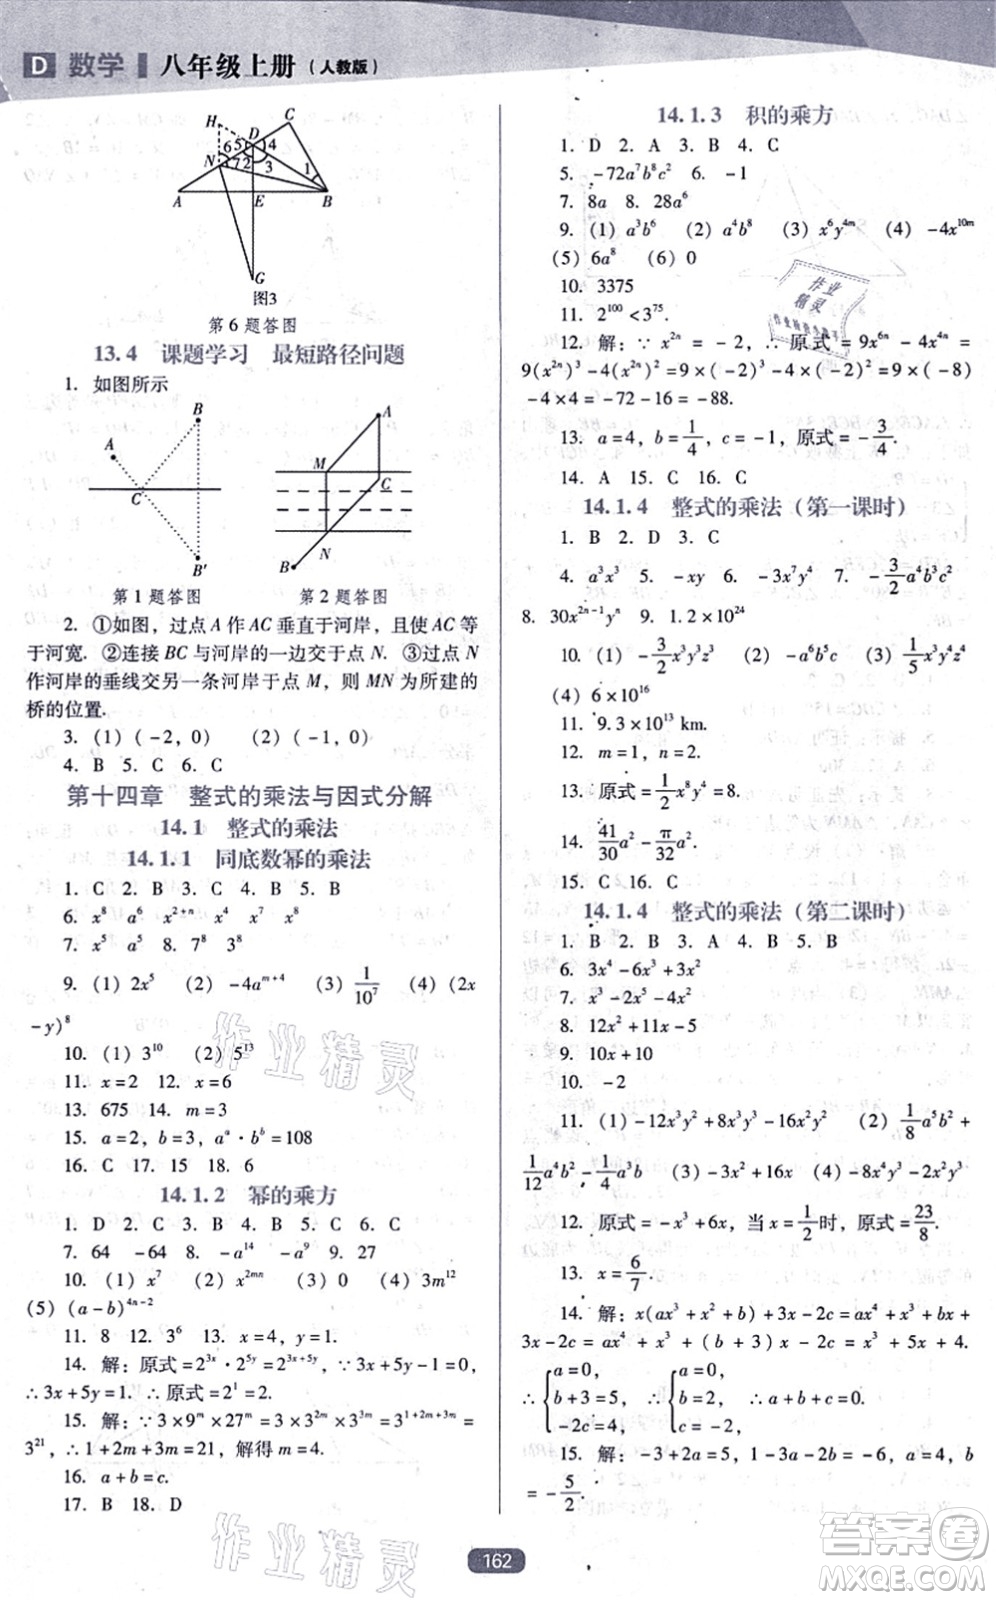 D 数学 八年级上册（人教版）
H C D 6 5 4 N 1 7 2 3 1 A E B G
图3
第 6 题答图
13.4 课题学习 最短路径问题
1. 如图所示
B A C B′
A M C N B
第 1 题答图 第 2 题答图
2. ①如图，过点 A 作 AC 垂直于河岸，且使 AC 等
于河宽. ②连接 BC 与河岸的一边交于点 N. ③过点 N
作河岸的垂线交另一条河岸于点 M，则 MN 为所建的
桥的位置.
3. (1) (-2, 0) (2) (-1, 0)
4. B 5. C 6. C
第十四章 整式的乘法与因式分解
14.1 整式的乘法
14.1.1 同底数幂的乘法
1. C 2. B 3. C 4. B 5. B
6. x⁸ a⁶ x²⁺ⁿ x⁴ x⁷ x⁸
7. x⁵ a⁵ 8. 7⁸ 3⁸
9. (1) 2x⁵ (2) -4aᵐ⁺⁴ (3) 1/10⁷ (4) (2x
-y)⁸
10. (1) 3¹⁰ (2) 5¹³
11. x=2 12. x=6
13. 675 14. m=3
15. a=2, b=3, aᵃ·bᵇ=108
16. C 17. 15 18. 6
14.1.2 幂的乘方
1. D 2. C 3. B 4. B 5. C 6. C
7. 64 -64 8. -a¹⁴ -a⁹ 9. 27
10. (1) x⁷ (2) x²ᵐⁿ (3) 0 (4) 3m¹²
(5) (a-b)⁴ⁿ⁻²
11. 8 12. 3⁶ 13. x=4, y=1.
14. 解：原式=2³ˣ·2⁵ʸ=2³ˣ⁺⁵ʸ, ∵3x+5y-1=0,
∴3x+5y=1, ∴原式=2¹=2.
15. 解：∵3×9ᵐ×27ᵐ=3×3²ᵐ×3³ᵐ=3¹⁺²ᵐ⁺³ᵐ=
3²¹, ∴1+2m+3m=21, 解得 m=4.
16. a+b=c.
17. B 18. D
14.1.3 积的乘方
1. D 2. A 3. B 4. C
5. -72a⁷b⁸c² 6. -1
7. 8a 8. 28a⁶
9. (1) a³b⁶ (2) a⁴b⁸ (3) x⁶y⁴ᵐ (4) -4x¹⁰ᵐ
(5) 6a⁸ (6) 0
10. 3375
11. 2¹⁰⁰<3⁷⁵.
12. 解：∵x²ⁿ=-2, ∴原式=9x⁶ⁿ-4x⁴ⁿ=
9(x²ⁿ)³-4(x²ⁿ)²=9×(-2)³-4×(-2)²=9×(-8)
-4×4=-72-16=-88.
13. a=4, b=1/4, c=-1, 原式=-3/4.
14. A 15. C 16. C
14.1.4 整式的乘法（第一课时）
1. B 2. D 3. C
4. a³x³ 5. -xy 6. -3x⁷y⁴ 7. -3/2a⁴b³c²
8. 30x²ⁿ⁻¹yⁿ 9. 1.2×10²⁴
10. (1) -3/2x³y³z³ (2) -a⁶b⁵c (3) 1/5x³y⁴z⁴
(4) 6×10¹⁶
11. 9.3×10¹³ km.
12. m=1, n=2.
13. 原式=1/2x⁸y⁴=8.
14. 41/30a²-π/32a².
15. C 16. C
14.1.4 整式的乘法（第二课时）
1. B 2. B 3. A 4. B 5. B
6. 3x⁴-6x³+3x²
7. x³-2x⁵-4x²
8. 12x²+11x-5
9. 10x+10
10. -2
11. (1) -12x³y²+8x³y³-16x²y² (2) 1/8a⁵b²+
1/12a⁴b²-1/4a³b (3) -3x²+16x (4) -8x³y-2x²y²
12. 原式=-x³+6x, 当 x=1/2时，原式=23/8.
13. x=6/7.
14. 解：x(ax³+x²+b)+3x-2c=ax⁴+x³+bx+
3x-2c=ax⁴+x³+(b+3)x-2c=x³+5x+4.
∴{a=0, b+3=5, -2c=4, ∴{a=0, b=2, c=-2. ∴a+b+c=0.
15. 解：-3+2a=5, 1-3a-2b=-6, a=4, b
=-5/2.
162
作业精灵
作业精灵
作业
精灵
答案卷
MXQE.COM